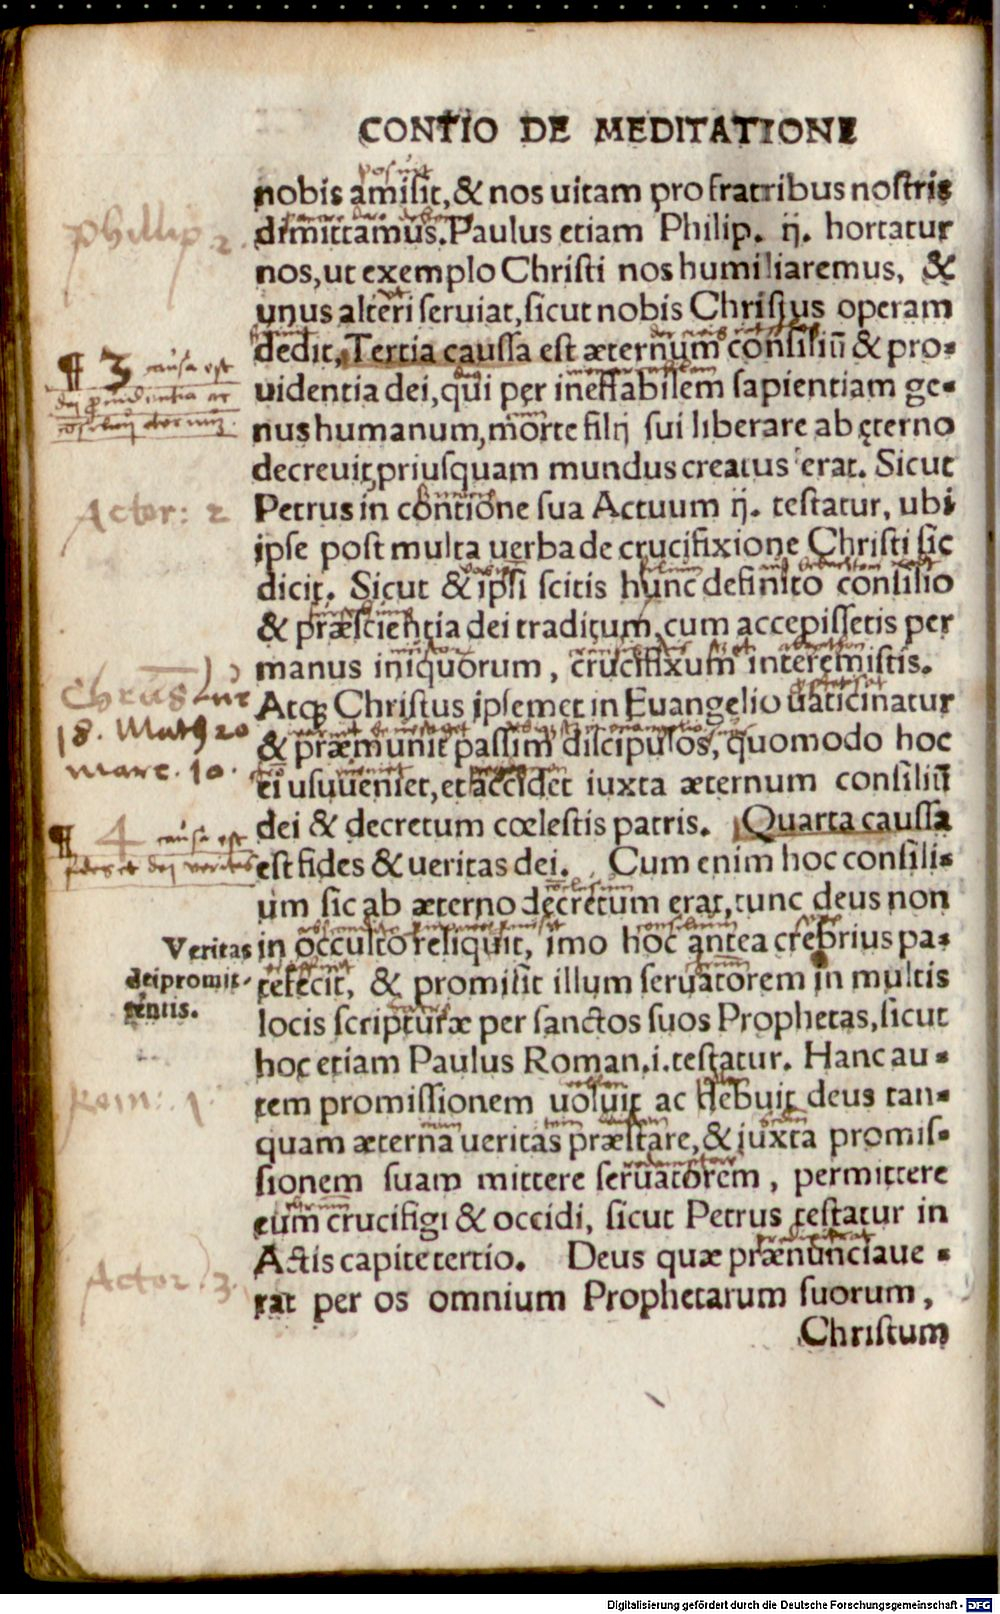 CONTIO DE MEDITATIONE
posuit
nobis amisit, & nos uitam pro fratribus nostris
dimittamus. Paulus etiam Philip. ij. hortatur
Phillip 2.
nos, ut exemplo Christi nos humiliaremus, &
unus alteri seruiat, sicut nobis Christus operam
dedit, Tertia caussa est æternum consiliū & pro-
¶ 3 causa est
uidentia dei, qui per ineffabilem sapientiam ge-
nus humanum, morte filij sui liberare ab ęterno
decreuit, priusquam mundus creatus erat. Sicut
Petrus in contione sua Actuum ij. testatur, ubi
Actor: 2
ipse post multa uerba de crucifixione Christi sic
dicit. Sicut & ipsi scitis hunc definito consilio
& præscientia dei traditum, cum accepissetis per
manus iniquorum, crucifixum interemistis.
Atq; Christus ipsemet in Euangelio uaticinatur
18. Math 20
& præmunit passim discipulos, quomodo hoc
marc. 10.
ei usuueniet, et accidet iuxta æternum consiliū
dei & decretum cœlestis patris. Quarta caussa
¶ 4 causa est
fides et dei veritas
est fides & ueritas dei. Cum enim hoc consili-
um sic ab æterno decretum erat, tunc deus non
in occulto reliquit, imo hoc antea crebrius pa-
Veritas
dei promit-
tentis.
tefecit, & promisit illum seruatorem in multis
locis scripturæ per sanctos suos Prophetas, sicut
hoc etiam Paulus Roman. i. testatur. Hanc au-
Rom: 1.
tem promissionem uoluit ac debuit deus tan-
quam æterna ueritas præstare, & iuxta promis-
sionem suam mittere seruatorem, permittere
eum crucifigi & occidi, sicut Petrus testatur in
Actis capite tertio. Deus quæ prænunciaue-
Actor. 3.
rat per os omnium Prophetarum suorum,
Christum
Digitalisierung gefördert durch die Deutsche Forschungsgemeinschaft - DFG